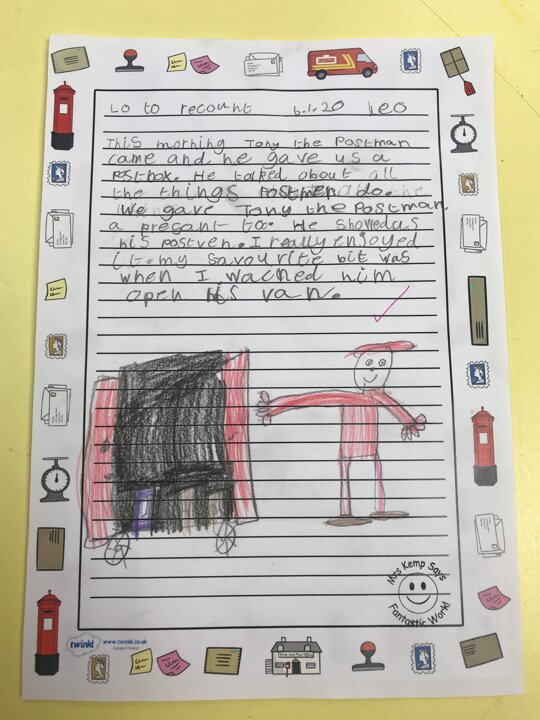 Lo to recount 6.1.20 Leo
This morning Tony the Postman
came and he gave us a
Postbox. He talked about all
the things Postmen do. the
We gave Tony the Postman
a presant too. He showed us
his postven. I really enjoyed
it my favourite bit was
when I wached him
open his van.
Mrs Kemp Says
Fantastic Work!
twinkl www.twinkl.co.uk